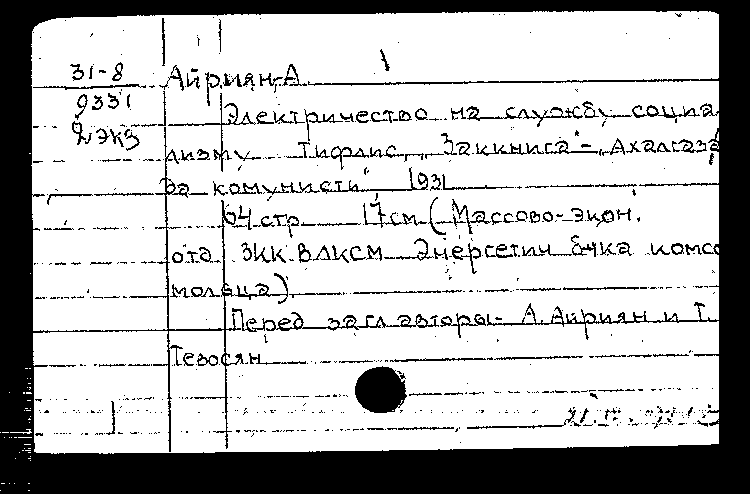 31-8 Айриян, А.
9331 Электричество на службу социа-
2 экз лизму Тифлис, „Заккнига"-„Ахалгаз
да комунисти", 1931
64 стр 17 см (Массово-экон.
отд ЗКК ВЛКСМ Энергетич б-чка комсо
мольца).
Перед загл авторы- А. Айриян и Т.
Тевосян